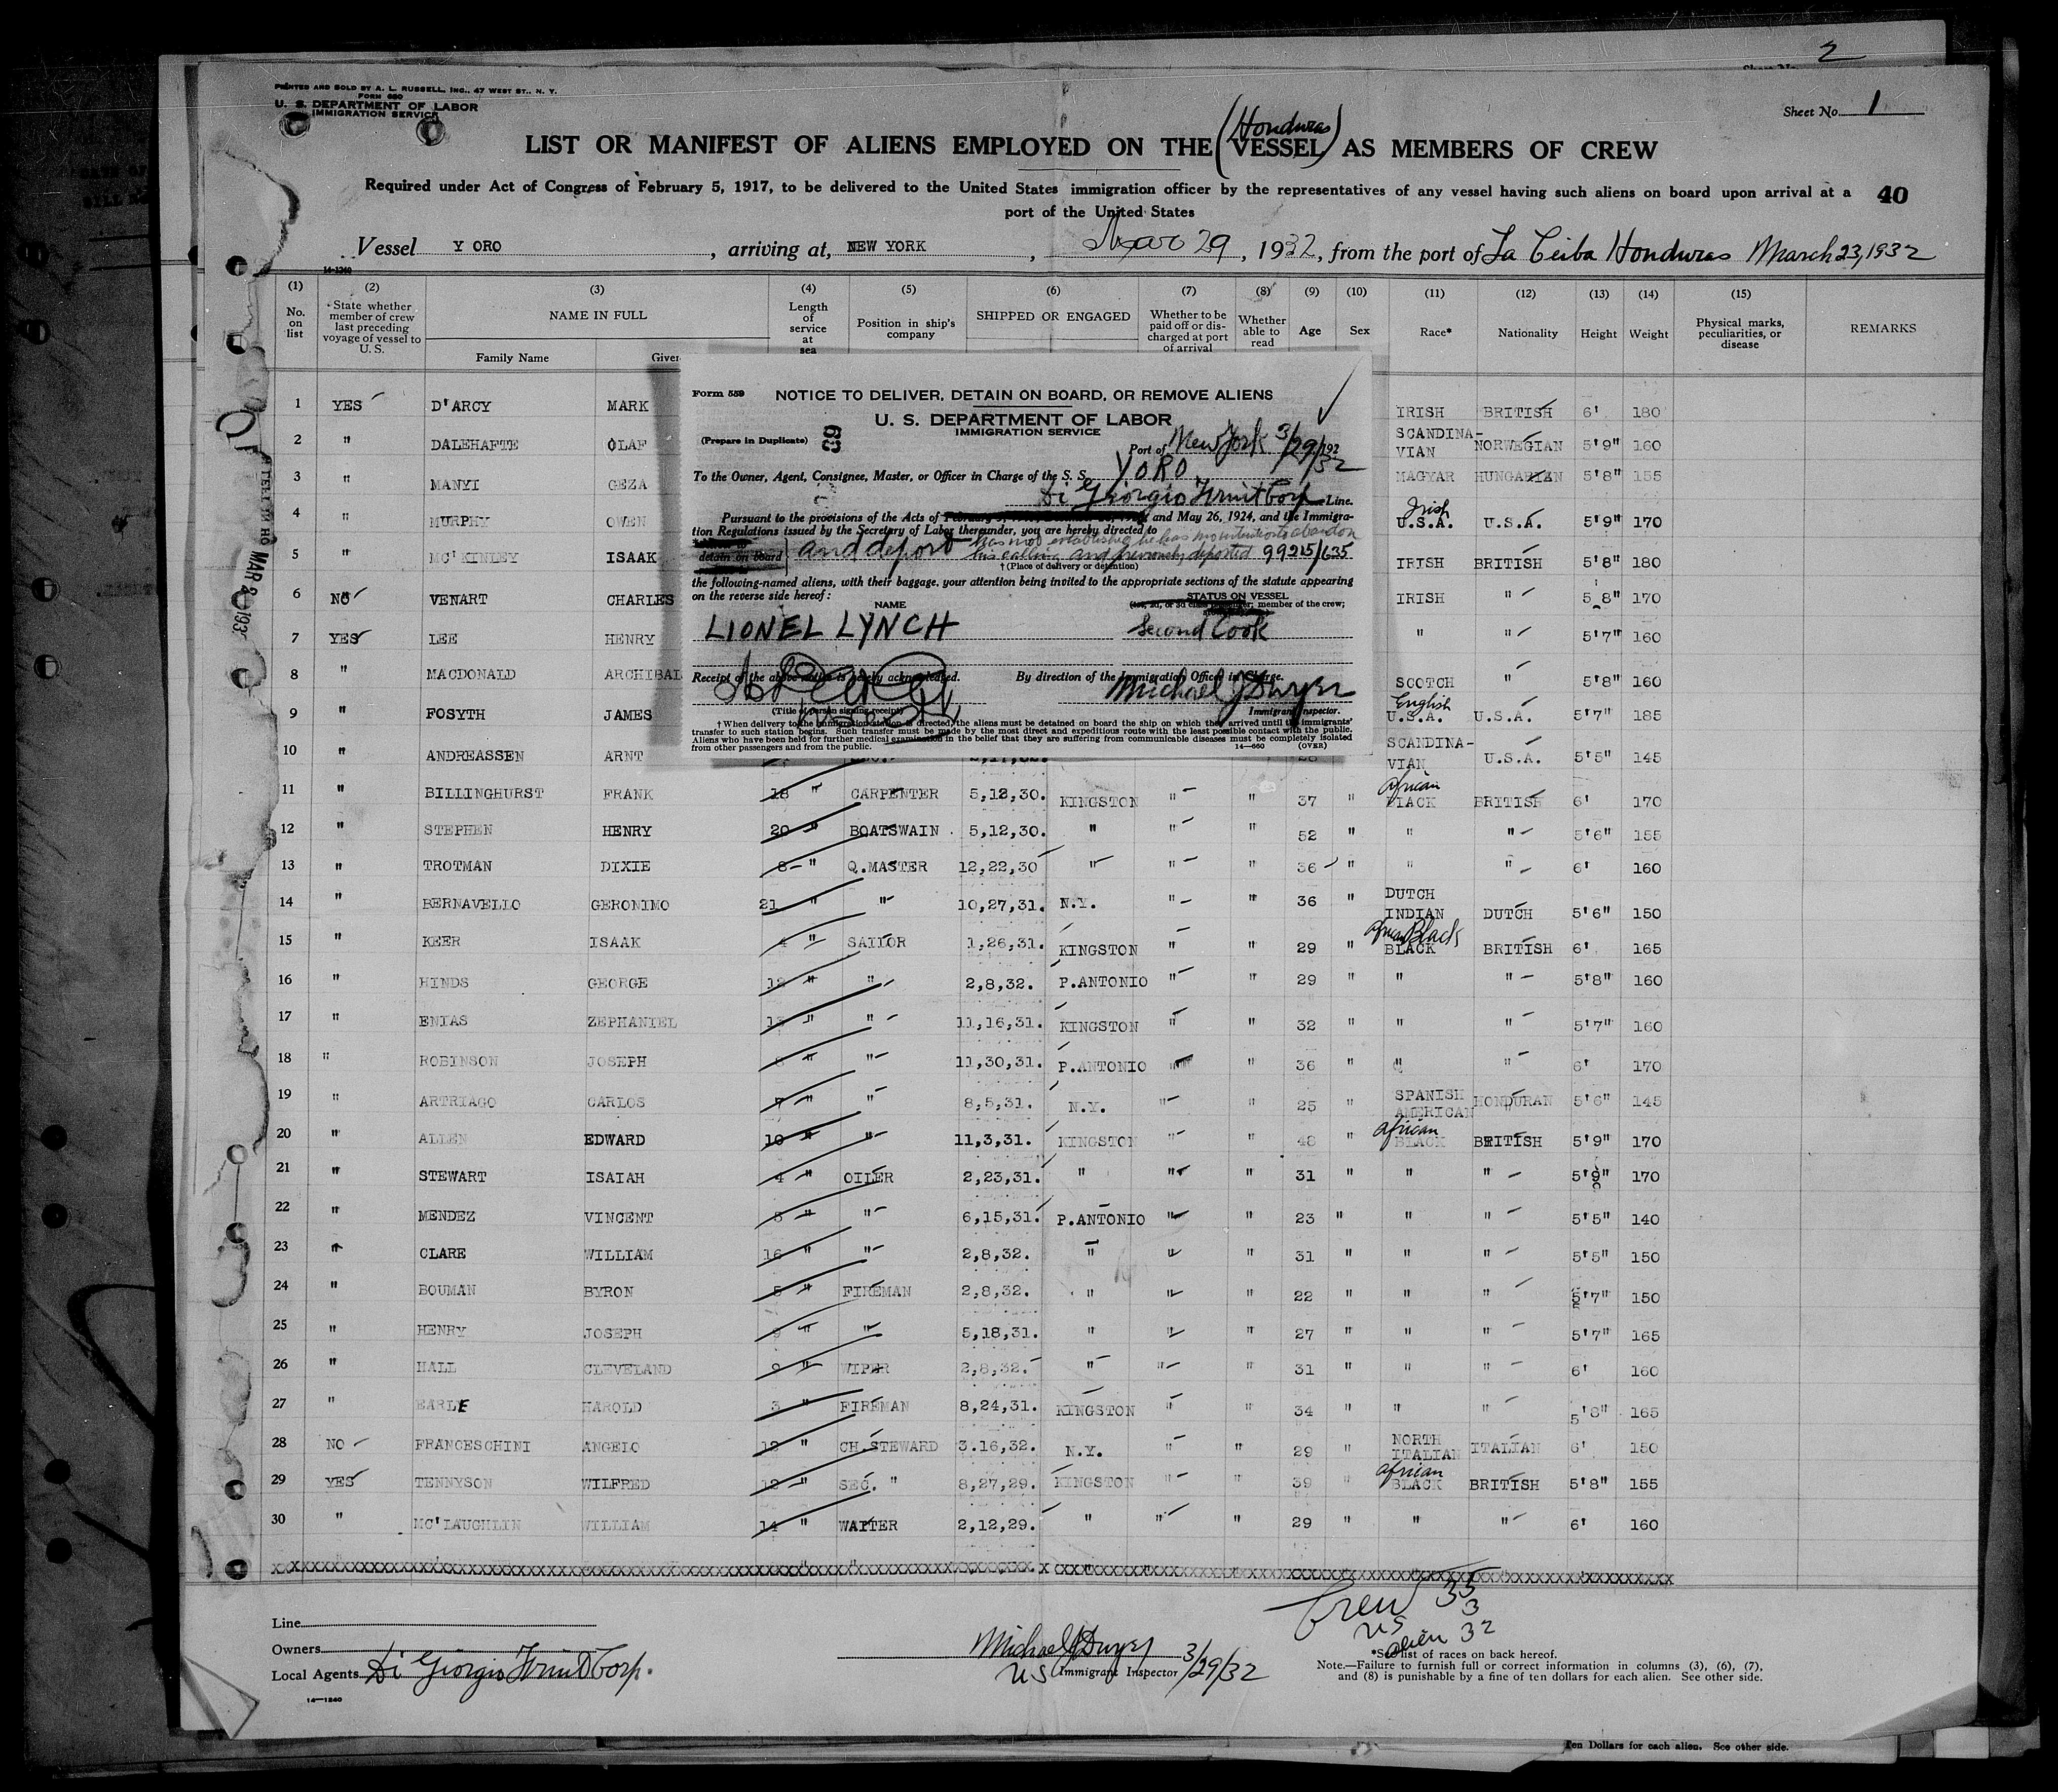 2
PRINTED AND SOLD BY A. L. RUSSELL, INC., 47 WEST ST., N. Y.
FORM 680
U. S. DEPARTMENT OF LABOR
IMMIGRATION SERVICE
Sheet No. 1
(Honduras)
LIST OR MANIFEST OF ALIENS EMPLOYED ON THE VESSEL AS MEMBERS OF CREW
Required under Act of Congress of February 5, 1917, to be delivered to the United States immigration officer by the representatives of any vessel having such aliens on board upon arrival at a
port of the United States
40
Vessel Y ORO, arriving at, NEW YORK, Mar 29, 1932, from the port of La Ceiba Honduras March 23, 1932
14-1240
(1) (2) (3) (4) (5) (6) (7) (8) (9) (10) (11) (12) (13) (14) (15)
No. on list State whether member of crew last preceding voyage of vessel to U. S. NAME IN FULL Length of service at sea Position in ship's company SHIPPED OR ENGAGED Whether to be paid off or discharged at port of arrival Whether able to read Age Sex Race* Nationality Height Weight Physical marks, peculiarities, or disease REMARKS
Family Name Given
1 YES D'ARCY MARK IRISH BRITISH 6' 180
2 " DALEHAFTE OLAF SCANDINA-VIAN NORWEGIAN 5'9" 160
3 " MANYI GEZA MAGYAR HUNGARIAN 5'8" 155
4 " MURPHY OWEN Irish U.S.A. U.S.A. 5'9" 170
5 " MC'KINLEY ISAAK IRISH BRITISH 5'8" 180
6 NO VENART CHARLES IRISH " 5 8" 170
7 YES LEE HENRY " " 5'7" 160
8 " MACDONALD ARCHIBAL SCOTCH " 5'8" 160
9 " FOSYTH JAMES English U.S.A. U.S.A. 5'7" 185
10 " ANDREASSEN ARNT SCANDINA-VIAN U.S.A. 5'5" 145
Form 559
NOTICE TO DELIVER, DETAIN ON BOARD, OR REMOVE ALIENS
U. S. DEPARTMENT OF LABOR
IMMIGRATION SERVICE
(Prepare in Duplicate)
39
Port of New York 3/29/32 192
To the Owner, Agent, Consignee, Master, or Officer in Charge of the S. S. YORO
Di Giorgio Fruit Corp Line.
Pursuant to the provisions of the Acts of and May 26, 1924, and the Immigra-
tion Regulations issued by the Secretary of Labor thereunder, you are hereby directed to
has not established he has no intention to abandon
detain on board and deport his calling and previously deported 99215/635
† (Place of delivery or detention)
the following-named aliens, with their baggage, your attention being invited to the appropriate sections of the statute appearing
on the reverse side hereof:
NAME STATUS ON VESSEL
member of the crew;
LIONEL LYNCH Second Cook
Receipt of the above notice is hereby acknowledged. By direction of the Immigration Officer in Charge.
Michael J Dwyer
(Title of person signing receipt) Immigrant Inspector.
† When delivery to the immigration station is directed, the aliens must be detained on board the ship on which they arrived until the immigrants'
transfer to such station begins. Such transfer must be made by the most direct and expeditious route with the least possible contact with the public.
Aliens who have been held for further medical examination in the belief that they are suffering from communicable diseases must be completely isolated
from other passengers and from the public. 14—660 (OVER)
11 " BILLINGHURST FRANK 18 " CARPENTER 5,12,30. KINGSTON " " 37 " African BLACK BRITISH 6' 170
12 " STEPHEN HENRY 20 " BOATSWAIN 5,12,30. " " " 52 " " " 5'6" 155
13 " TROTMAN DIXIE 8 " Q.MASTER 12,22,30 " " " 36 " " " 6' 160
14 " BERNAVELLO GERONIMO 21 " " 10,27,31. N.Y. " " 36 " DUTCH INDIAN DUTCH 5'6" 150
15 " KEER ISAAK 4 " SAILOR 1,26,31. KINGSTON " " 29 " African Black BLACK BRITISH 6' 165
16 " HINDS GEORGE 12 " " 2,8,32. P.ANTONIO " " 29 " " " 5'8" 160
17 " ENIAS ZEPHANIEL 13 " " 11,16,31. KINGSTON " " 32 " " " 5'7" 160
18 " ROBINSON JOSEPH 8 " " 11,30,31. P.ANTONIO " " 36 " " " 6' 170
19 " ARTRIAGO CARLOS 7 " " 8,5,31. N.Y. " " 25 " SPANISH AMERICAN HONDURAN 5'6" 145
20 " ALLEN EDWARD 10 " " 11,3,31. KINGSTON " " 48 " African BLACK BRITISH 5'9" 170
21 " STEWART ISAIAH 4 " OILER 2,23,31. " " " 31 " " " 5'9" 170
22 " MENDEZ VINCENT 8 " " 6,15,31. P.ANTONIO " " 23 " " " 5'5" 140
23 " CLARE WILLIAM 16 " " 2,8,32. " " " 31 " " " 5'5" 150
24 " BOUMAN BYRON 5 " FIREMAN 2,8,32. " " " 22 " " " 5'7" 150
25 " HENRY JOSEPH 9 " " 5,18,31. " " " 27 " " " 5'7" 165
26 " HALL CLEVELAND 9 " WIPER 2,8,32. " " " 31 " " " 6' 160
27 " EARLE HAROLD 3 " FIREMAN 8,24,31. KINGSTON " " 34 " " " 5'8" 165
28 NO FRANCESCHINI ANGELO 12 " CH.STEWARD 3.16,32. N.Y. " " 29 " NORTH ITALIAN ITALIAN 6' 150
29 YES TENNYSON WILFRED 12 " SEC. " 8,27,29. KINGSTON " " 39 " African BLACK BRITISH 5'8" 155
30 " MC'LAUGHLIN WILLIAM 14 " WAITER 2,12,29. " " " 29 " " " 6' 160
Crew 35
US 3
alien 32
Line
Owners
Local Agents Di Giorgio Fruit Corp.
Michael J Dwyer 3/29/32
US Immigrant Inspector
*See list of races on back hereof.
Note.—Failure to furnish full or correct information in columns (3), (6), (7),
and (8) is punishable by a fine of ten dollars for each alien. See other side.
14—1240
Ten Dollars for each alien. See other side.